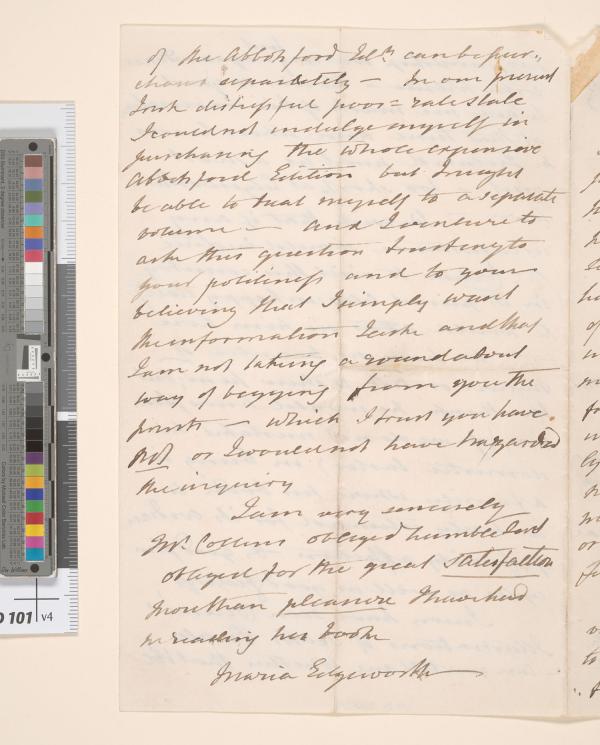 of the Abbotsford Edn can be pur-
chased separately — In our present
Irish distressful poor=rate state
I could not indulge myself in
purchasing the whole expensive
Abbotsford Edition but I might
be able to treat myself to a separate
volume — and I venture to
ask this question trusting to
your politeness and to your
believing that I simply want
the information I ask and that
I am not taking a roundabout
way of begging from you the
prints — which I trust you have
not or I would not have hazarded
the inquiry
I am very sincerely
Mr. Collins obliged humble Servt
obliged for the great satisfaction
more than pleasure I have had
in reading his book
Maria Edgeworth
D 101 v4